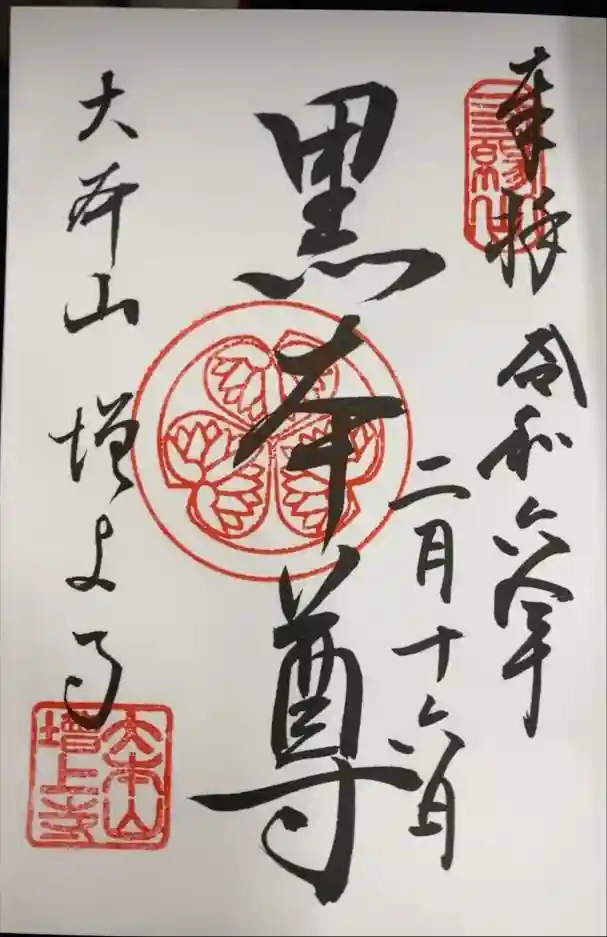 奉拝
令和六年
二月十六日
黒本尊
大本山 増上寺
三縁山
大本山
增上寺